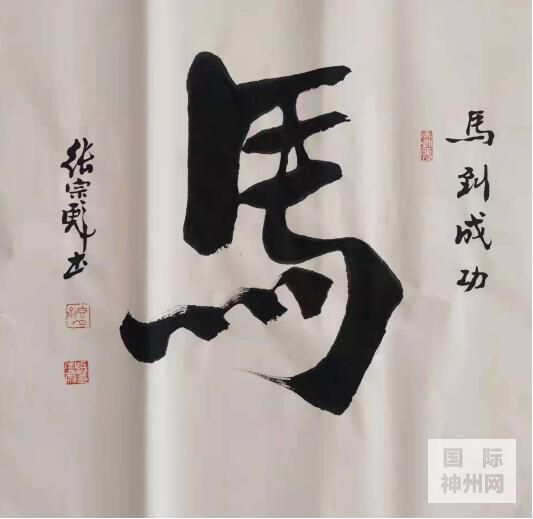 馬到成功
馬
张宗书
国际
神州网